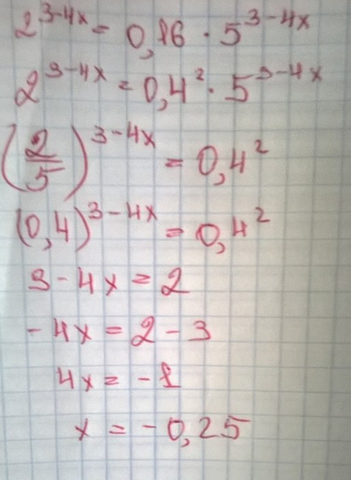 2^{3-4x} = 0,16 · 5^{3-4x}
2^{3-4x} = 0,4^2 · 5^{3-4x}
(2/5)^{3-4x} = 0,4^2
(0,4)^{3-4x} = 0,4^2
3-4x = 2
-4x = 2-3
4x = -1
x = -0,25